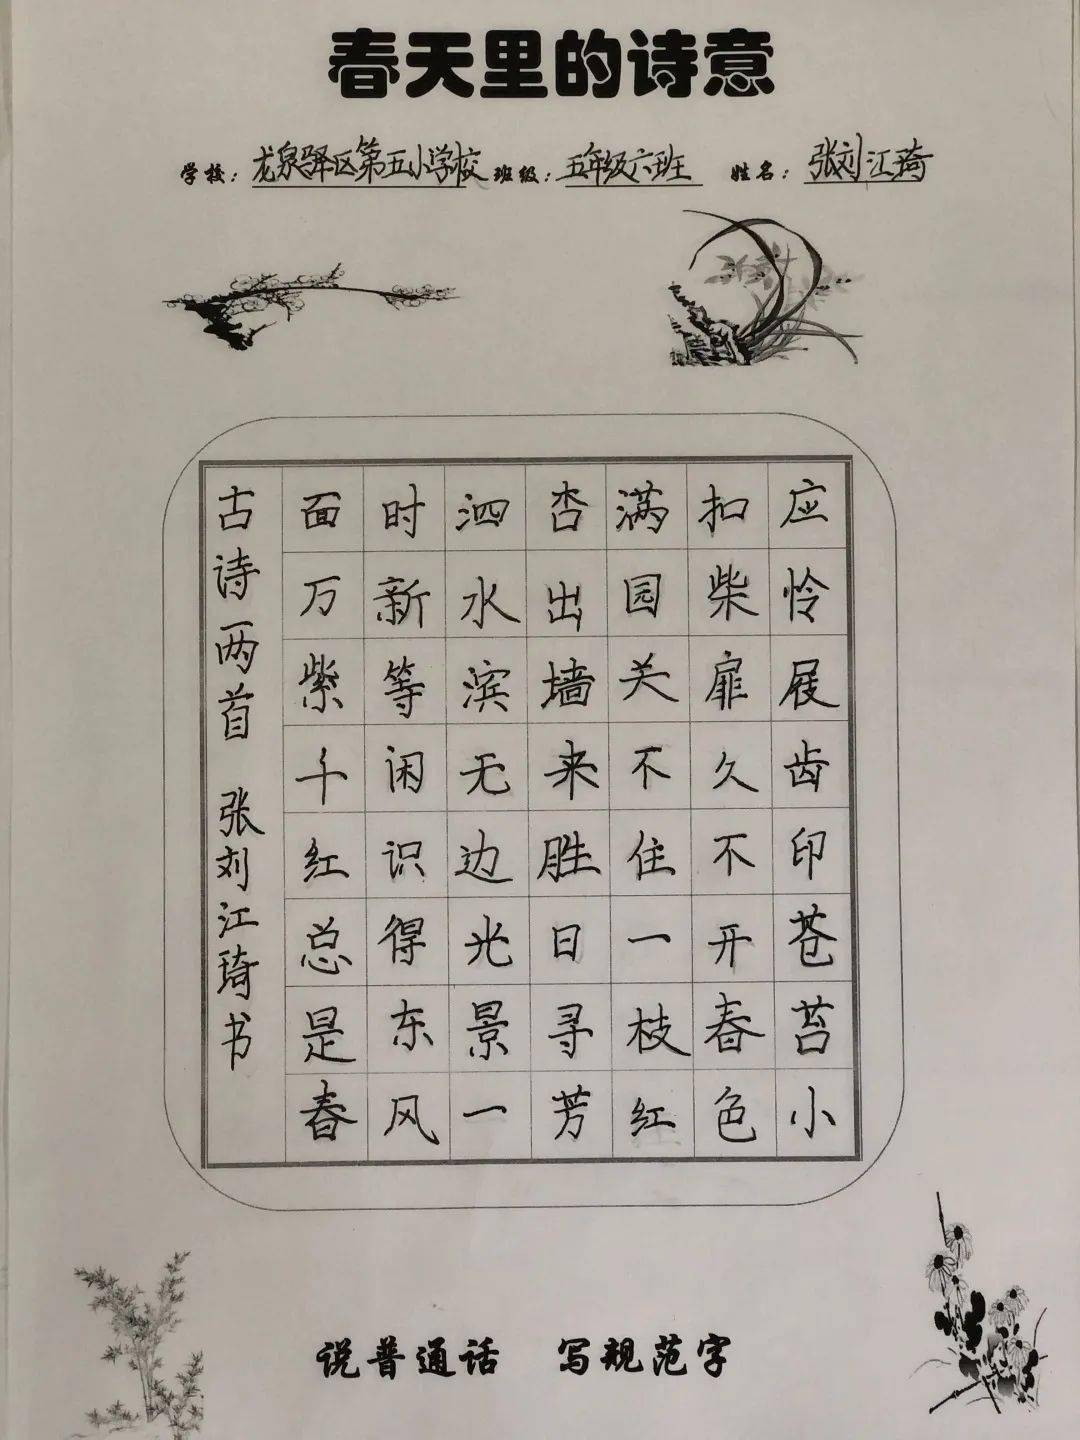 春天里的诗意
学校：龙泉驿区第五小学校 班级：五年级六班 姓名：张刘江琦
应怜屐齿印苍苔小
扣柴扉久不开春色
满园关不住一枝红
杏出墙来胜日寻芳
泗水滨无边光景一
时新等闲识得东风
面万紫千红总是春
古诗两首 张刘江琦书
说普通话 写规范字